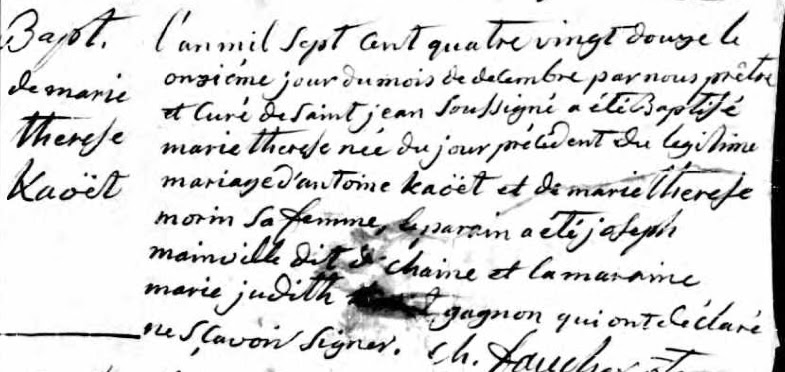 Bapt.
de marie
therese
Kaöet
l'an mil sept cent quatre vingt douze le
onziéme jour du mois de decembre par nous prêtre
et Curé de Saint jean Soussigné a été Baptisé
marie therese née du jour précédent du legitime
mariage d'antoine Kaöet et de marie therese
morin sa femme, le parain a été joseph
mainville dit chaine et la maraine
marie judith gagnon qui ont déclaré
ne sçavoir signer. Ch. faucher ptre